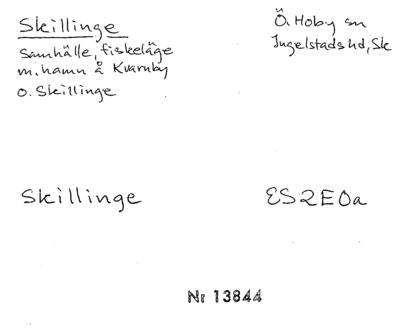 Skillinge
Ö. Hoby sn
Samhälle, fiskeläge
Ingelstads hd, Sk
m. hamn å Kvarnby
o. Skillinge
Skillinge
ES2E0a
Nr 13844